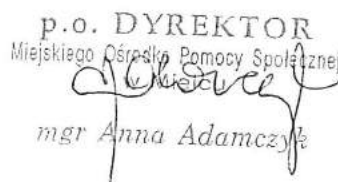 p.o. DYREKTOR
Miejskiego Ośrodka Pomocy Społecznej
w Mielcu
mgr Anna Adamczyk